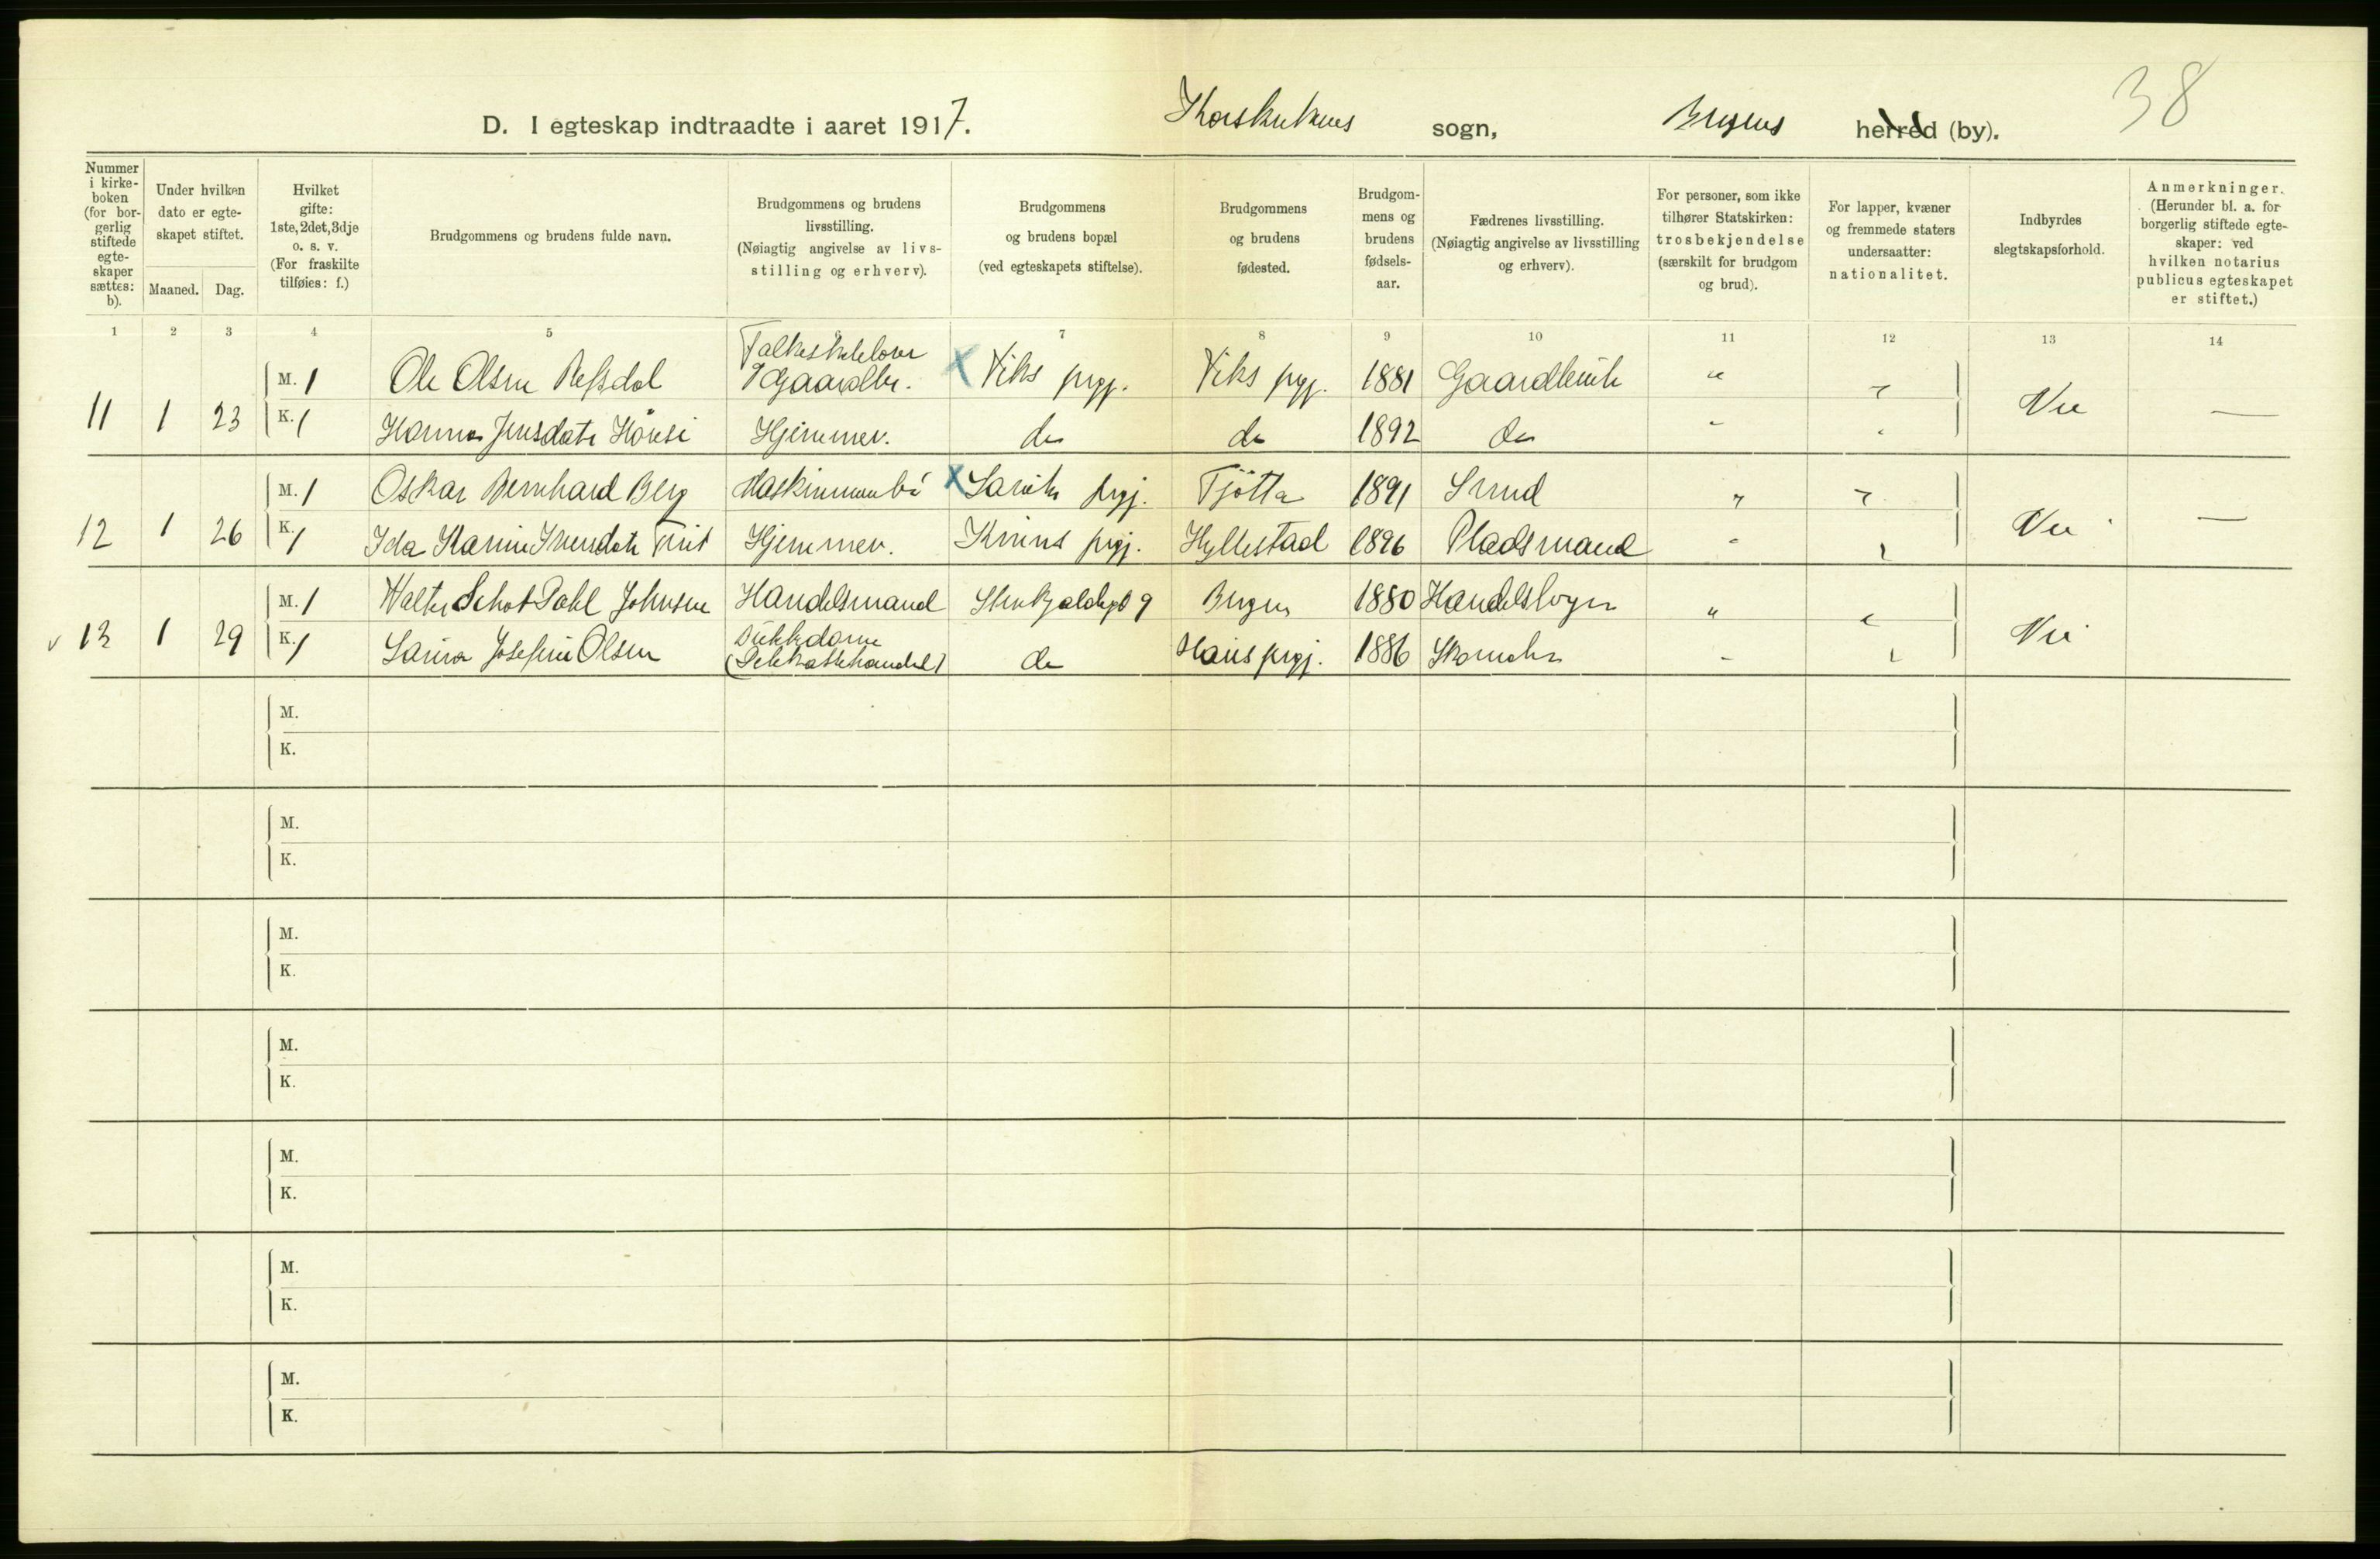 38
D. I egteskap indtraadte i aaret 1917. Korskirkens sogn, Bergens herred (by).
Nummer i kirke-boken (for bor-gerlig stiftede egte-skaper sættes: b).
Under hvilken dato er egte-skapet stiftet.
Maaned. Dag.
Hvilket gifte: 1ste, 2det, 3dje o. s. v. (For fraskilte tilføies: f.)
Brudgommens og brudens fulde navn.
Brudgommens og brudens livsstilling. (Nøiagtig angivelse av livs-stilling og erhverv).
Brudgommens og brudens bopæl (ved egteskapets stiftelse).
Brudgommens og brudens fødested.
Brudgom-mens og brudens fødsels-aar.
Fædrenes livsstilling. (Nøiagtig angivelse av livsstilling og erhverv).
For personer, som ikke tilhører Statskirken: trosbekjendelse (særskilt for brudgom og brud).
For lapper, kvæner og fremmede staters undersaatter: nationalitet.
Indbyrdes slegtskapsforhold.
Anmerkninger. (Herunder bl. a. for borgerlig stiftede egte-skaper: ved hvilken notarius publicus egteskapet er stiftet.)
1 2 3 4 5 7 8 9 10 11 12 13 14
M. 1 Ole Olsen Refsdal Gaardbr. X Viks prgj. Viks prgj. 1881 Gaardbruk " "
11 1 23 Nei —
K. 1 Hanna Jensdatr Hjemmev. do do 1892 do " "
M. 1 Oskar Bernhard Berg X prgj. Tjötta 1891 Smed " "
12 1 26 Nei —
K. 1 Ida Hjemmev. Kinns prgj. Hyllestad 1896 Pladsmand " "
M. 1 Walter Schot Dahl Johnsen Handelsmand 9 Bergen 1880 " "
v 13 1 29 Nei
K. 1 Josefine Olsen (Delikatessehandel) do Haus prgj. 1886 Skomaker " "
M.
K.
M.
K.
M.
K.
M.
K.
M.
K.
M.
K.
M.
K.